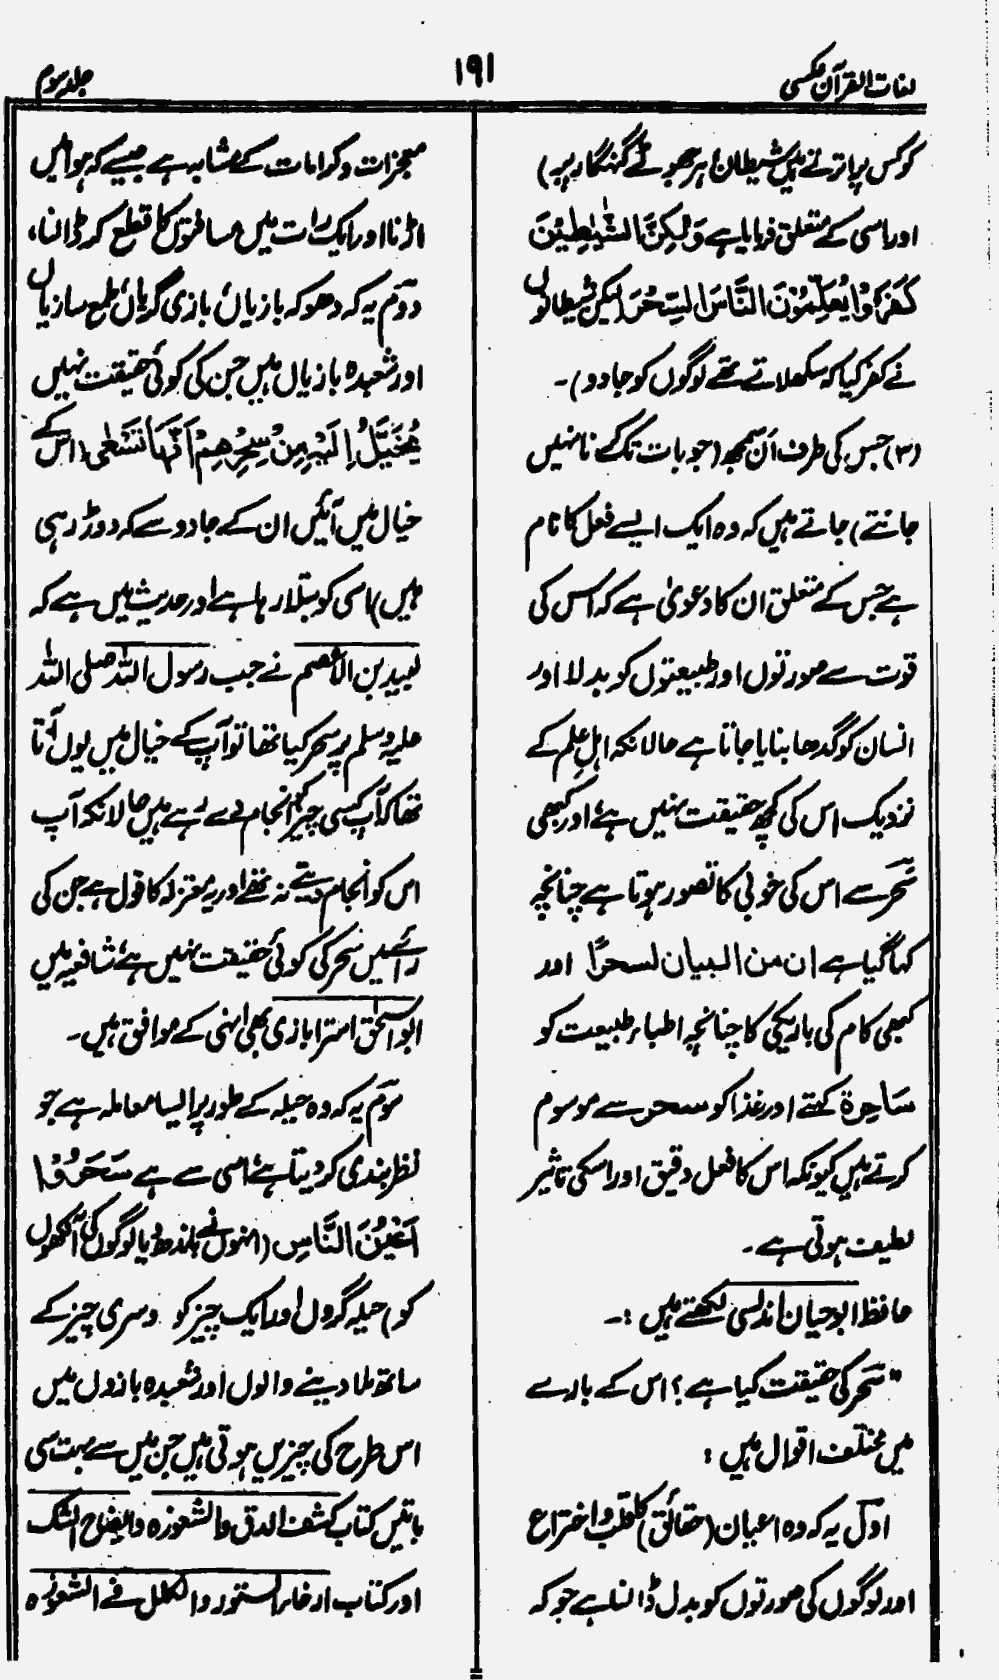 لغات القرآن عکسی
۱۹۱
جلد سوم
کو کس پر اترتے ہیں شیطان ہر جھوٹے گنہگار پر)
اور اسی کے متعلق فرمایا ہے وَلٰكِنَّ الشَّيٰطِيْنَ
كَفَرُوْا يُعَلِّمُوْنَ النَّاسَ السِّحْرَ (لیکن شیطانوں
نے کفر کیا کہ سکھلاتے تھے لوگوں کو جادو)۔
(۳) جس کی طرف اَن سمجھ (جو بات تک کرنا نہیں
جانتے) جاتے ہیں کہ وہ ایک ایسے فعل کا نام
ہے جس کے متعلق ان کا دعویٰ ہے کہ اس کی
قوت سے صورتوں اور طبیعتوں کو بدلا اور
انسان کو گدھا بنایا جاتا ہے حالانکہ اہلِ علم کے
نزدیک اس کی کچھ حقیقت نہیں ہے، اور کبھی
سحر سے اس کی خوبی کا تصور ہوتا ہے چنانچہ
کہا گیا ہے ان من البیان لسحرًا اور
کبھی کام کی باریکی کا چنانچہ اطباء طبیعت کو
سَاحِرة کہتے اور غذا کو سحر سے موسوم
کرتے ہیں کیونکہ اس کا فعل دقیق اور اسکی تاثیر
لطیف ہوتی ہے۔
حافظ ابو حیان اندلسی لکھتے ہیں :۔
"سحر کی حقیقت کیا ہے؟ اس کے بارے
میں مختلف اقوال ہیں :
اول یہ کہ وہ اعیان (حقائق) کا قلب و اختراع
اور لوگوں کی صورتوں کو بدل ڈالنا ہے جو کہ
معجزات و کرامات کے مشابہ ہے جیسے کہ ہوا میں
اڑنا اور ایک رات میں مسافتوں کا قطع کر ڈالنا،
دوم یہ کہ دھوکہ بازیاں، بازی گریاں، ملمع سازیاں
اور شعبدہ بازیاں ہیں جن کی کوئی حقیقت نہیں
يُخَيَّلُ اِلَيْهِ مِنْ سِحْرِهِمْ اَنَّهَا تَسْعٰى (اس کے
خیال میں آئیں ان کے جادو سے کہ دوڑ رہی
ہیں) اسی کو بتلا رہا ہے اور حدیث میں ہے کہ
لبید بن الاعصم نے جب رسول اللہ صلی اللہ
علیہ وسلم پر سحر کیا تھا تو آپ کے خیال میں یوں آتا
تھا کہ آپ کسی چیز کو انجام دے رہے ہیں حالانکہ آپ
اس کو انجام دیتے نہ تھے اور یہ معتزلہ کا قول ہے جن کی
رائے میں سحر کی کوئی حقیقت نہیں ہے، شافعیہ میں
ابو اسحٰق استرابازی بھی انہی کے موافق ہیں۔
سوم یہ کہ وہ حیلہ کے طور پر ایسا معاملہ ہے جو
نظر بندی کر دیتا ہے، اسی سے ہے سَحَرُوْٓا
اَعْيُنَ النَّاسِ (انہوں نے باندھ دیا لوگوں کی آنکھوں
کو) حیلہ گروں اور ایک چیز کو دوسری چیز کے
ساتھ ملا دینے والوں اور شعبدہ بازوں میں
اس طرح کی چیزیں ہوتی ہیں جن میں سے بہت سی
باتیں کتاب کشف الدق والشعوذہ وایضاح الشک
اور کتاب ارخاء الستور والکلل فے الشعوذہ